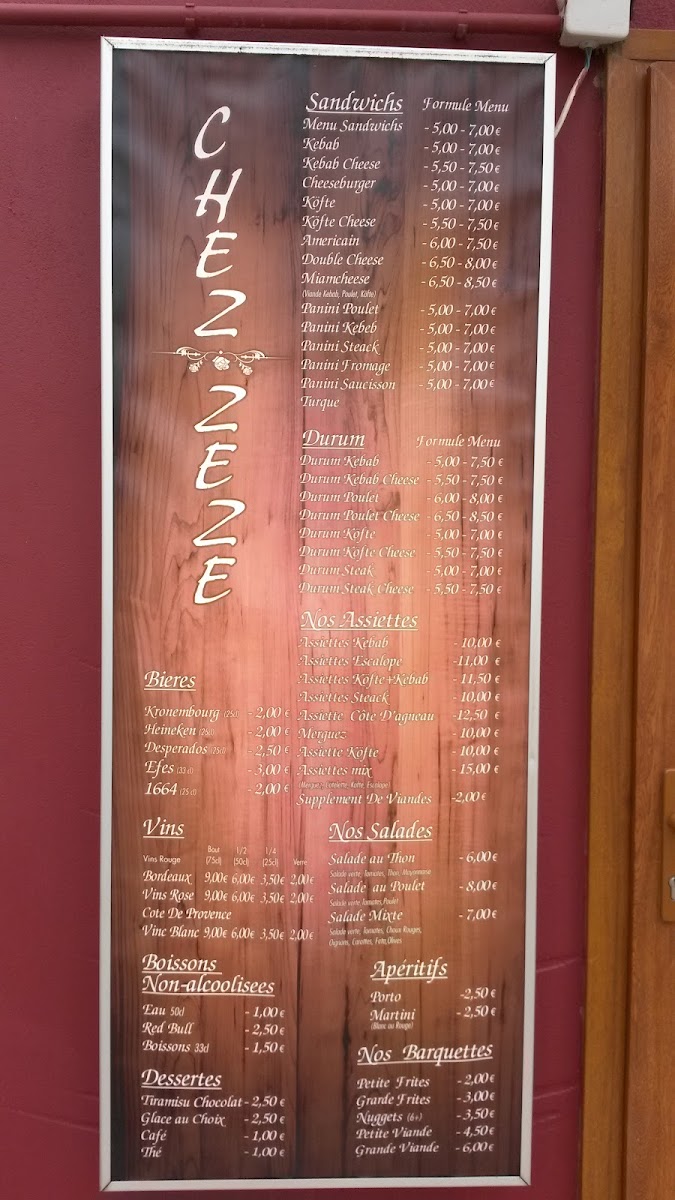 CHEZ ZEZE
Sandwichs Formule Menu
Menu Sandwichs - 5,00 - 7,00 €
Kebab - 5,00 - 7,00 €
Kebab Cheese - 5,50 - 7,50 €
Cheeseburger - 5,00 - 7,00 €
Köfte - 5,00 - 7,00 €
Köfte Cheese - 5,50 - 7,50 €
Americain - 6,00 - 7,50 €
Double Cheese - 6,50 - 8,00 €
Miamcheese - 6,50 - 8,50 €
(Viande Kebab, Poulet, Köfte)
Panini Poulet - 5,00 - 7,00 €
Panini Kebeb - 5,00 - 7,00 €
Panini Steack - 5,00 - 7,00 €
Panini Fromage - 5,00 - 7,00 €
Panini Saucisson - 5,00 - 7,00 €
Turque
Durum Formule Menu
Durum Kebab - 5,00 - 7,50 €
Durum Kebab Cheese - 5,50 - 7,50 €
Durum Poulet - 6,00 - 8,00 €
Durum Poulet Cheese - 6,50 - 8,50 €
Durum Köfte - 5,00 - 7,00 €
Durum Köfte Cheese - 5,50 - 7,50 €
Durum Steak - 5,00 - 7,00 €
Durum Steak Cheese - 5,50 - 7,50 €
Nos Assiettes
Assiettes Kebab - 10,00 €
Assiettes Escalope -11,00 €
Assiettes Köfte+Kebab - 11,50 €
Assiettes Steack - 10,00 €
Assiette Côte D'agneau -12,50 €
Merguez - 10,00 €
Assiette Köfte - 10,00 €
Assiettes mix - 15,00 €
Supplement De Viandes -2,00 €
Bieres
Kronembourg (25cl) - 2,00 €
Heineken (25cl) - 2,00 €
Desperados - 2,50 €
Efes (33 cl) - 3,00 €
1664 (25 cl) - 2,00 €
Vins
Bout 1/2 1/4
Vins Rouge (75cl) (50cl) (25cl) Verre
Bordeaux 9,00€ 6,00€ 3,50€ 2,00€
Vins Rose 9,00€ 6,00€ 3,50€ 2,00€
Cote De Provence
Vinc Blanc 9,00€ 6,00€ 3,50€ 2,00€
Nos Salades
Salade au Thon - 6,00€
Salade verte, Tomates, Thon, Mayonnaise
Salade au Poulet - 8,00€
Salade verte, Tomates, Poulet
Salade Mixte - 7,00€
Salade verte, Tomates, Choux Rouges,
Oignons, Carottes, Feta, Olives
Boissons
Non-alcoolisees
Eau 50cl - 1,00 €
Red Bull - 2,50 €
Boissons 33cl - 1,50 €
Apéritifs
Porto -2,50 €
Martini - 2,50 €
(Blanc ou Rouge)
Dessertes
Tiramisu Chocolat - 2,50 €
Glace au Choix - 2,50 €
Café - 1,00 €
Thé - 1,00 €
Nos Barquettes
Petite Frites - 2,00 €
Garde Frites - 3,00 €
Nuggets (6+) - 3,50 €
Petite Viande - 4,50 €
Grande Viande - 6,00 €